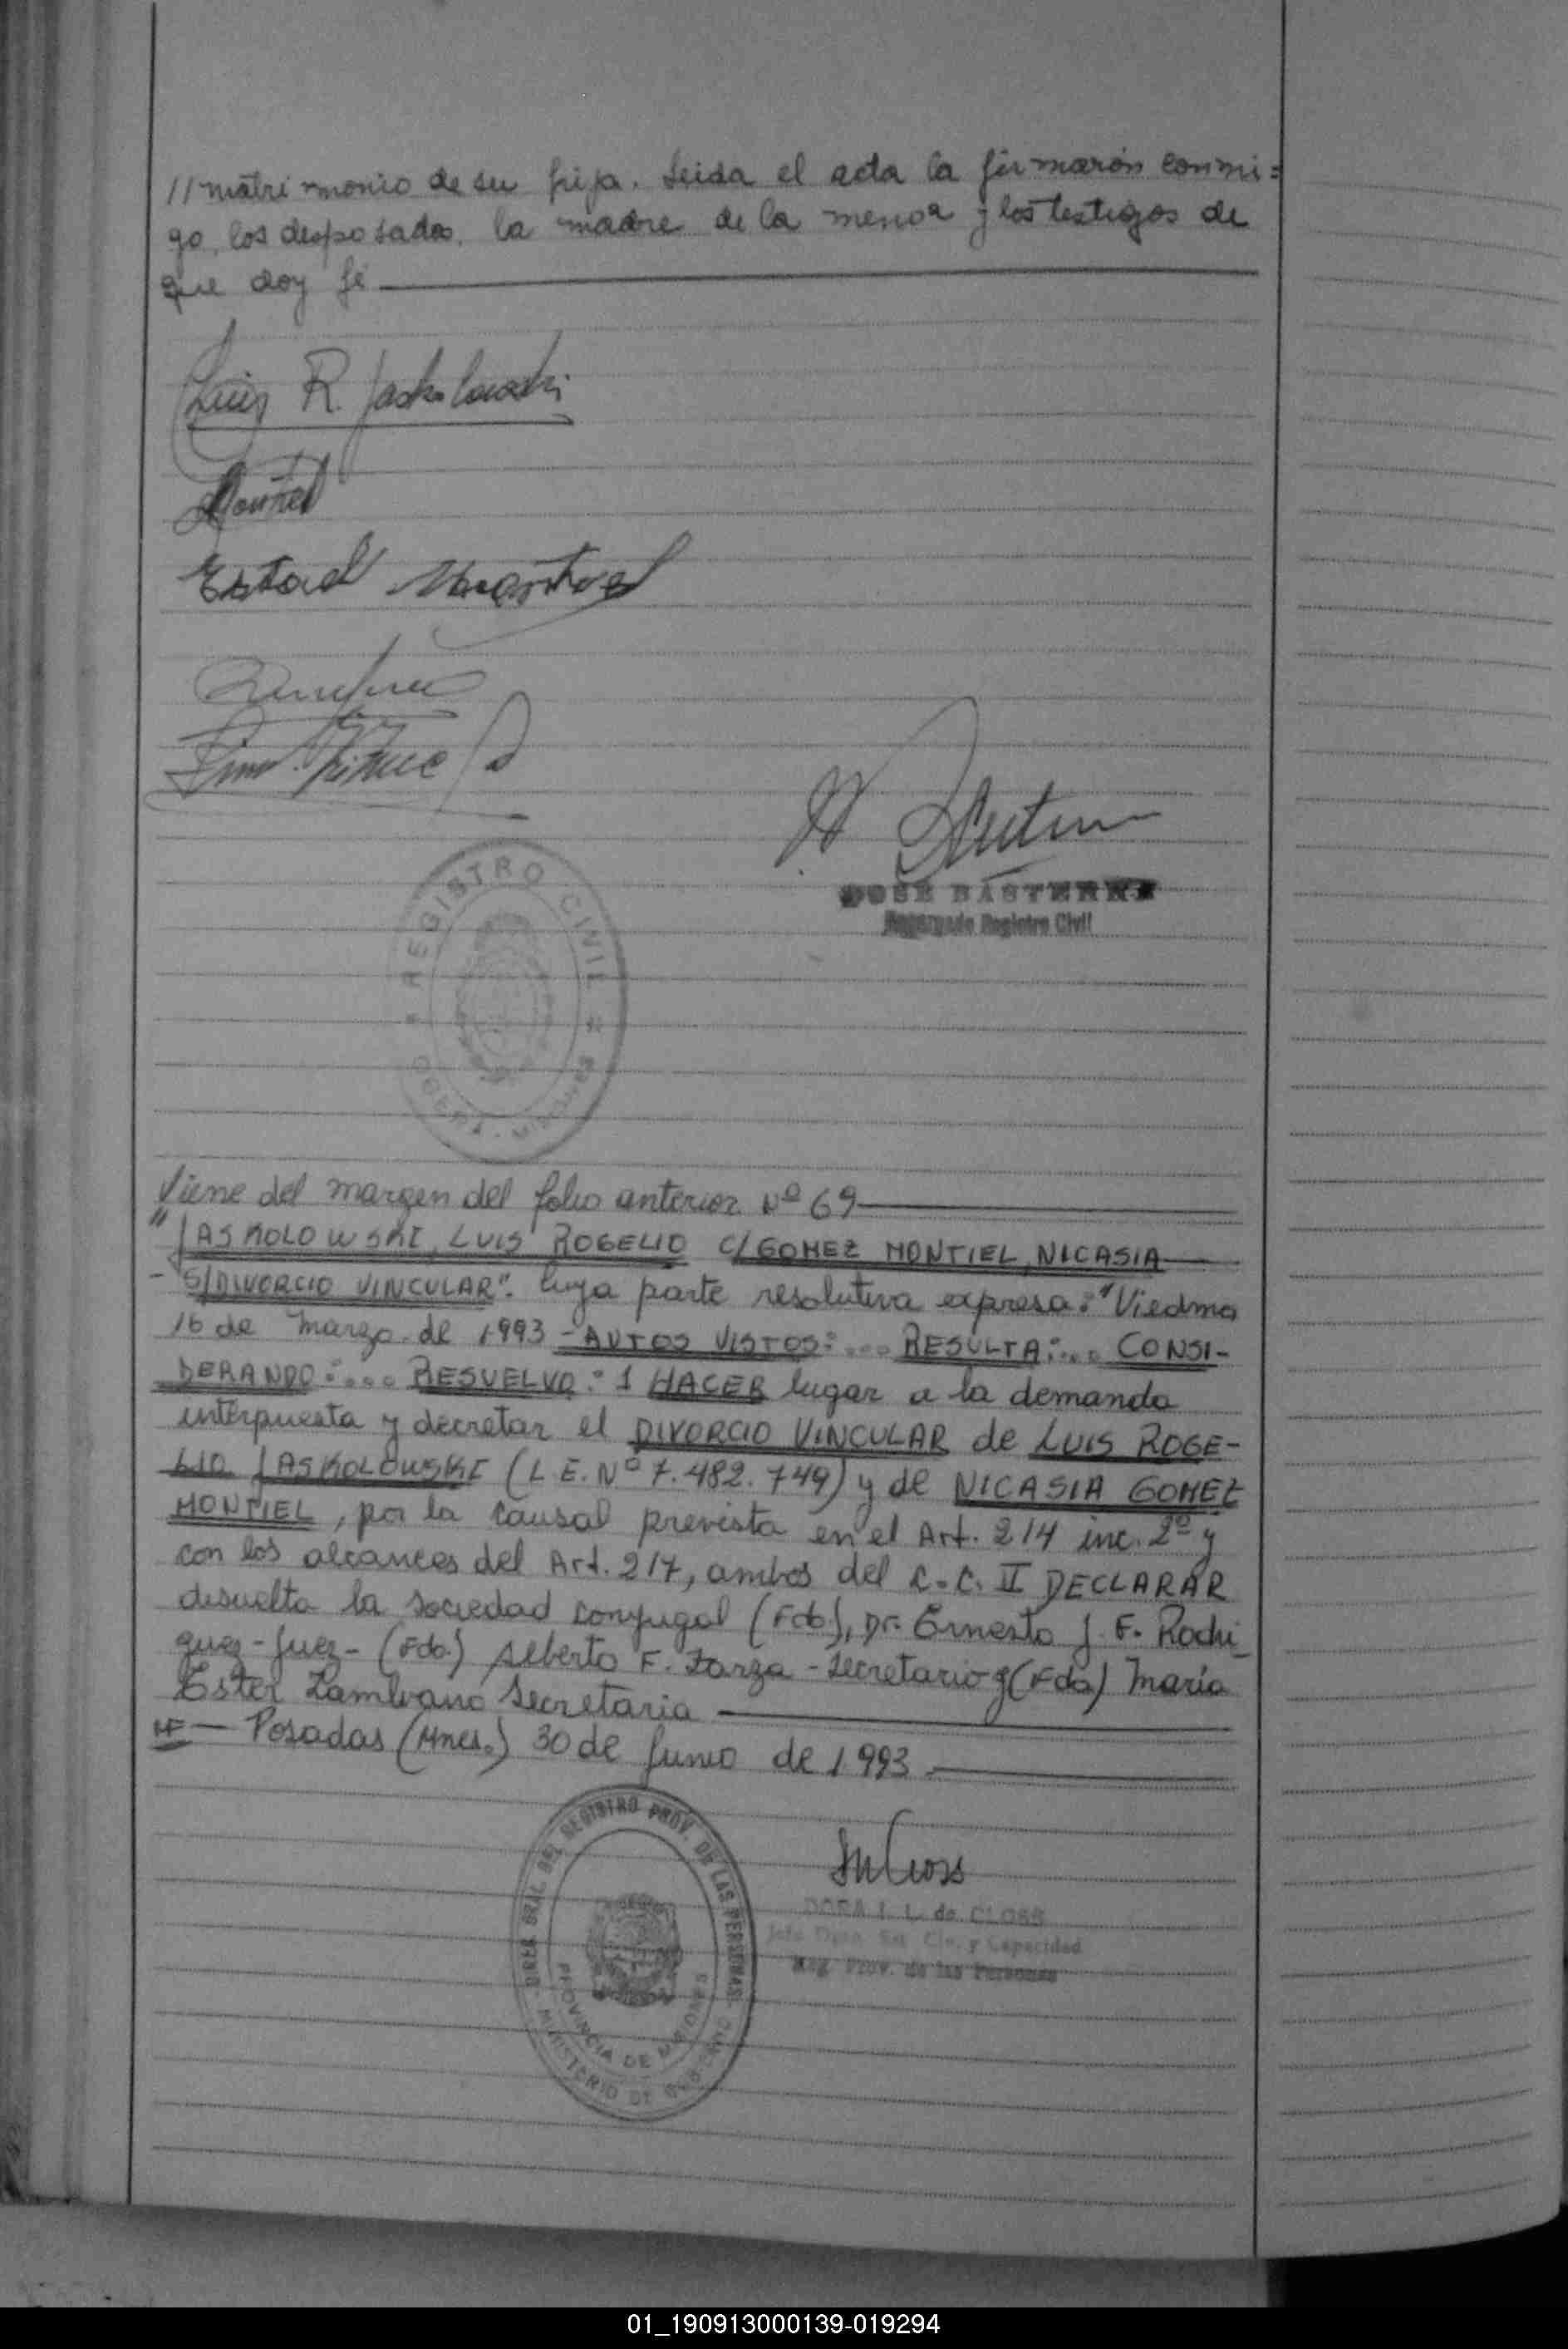 //matrimonio de su hija. Leida el acta la firmarón conmi=
go, los desposados, la madre de la menor y los testigos de
que doy fé
Luis R. Jaskolowski
Montiel
JOSÉ BASTERRA
Encargado Registro Civil
REGISTRO CIVIL
OBERA - MISIONES
Viene del margen del folio anterior Nº 69
"JASKOLOWSKI, LUIS ROGELIO C/GOMEZ MONTIEL, NICASIA
- S/DIVORCIO VINCULAR". Cuya parte resolutiva expresa: "Viedma
16 de Marzo de 1993 - AUTOS VISTOS:... RESULTA:... CONSI-
DERANDO:... RESUELVO: 1 HACER lugar a la demanda
interpuesta y decretar el DIVORCIO VINCULAR de LUIS ROGE-
LIO JASKOLOWSKI (L.E. Nº 7.482.749) y de NICASIA GOMEZ
MONTIEL, por la causal prevista en el Art. 214 inc. 2º y
con los alcances del Art. 217, ambos del C.C. II DECLARAR
disuelta la sociedad conyugal (Fdo), Dr. Ernesto J. F. Rodri
guez - Juez - (Fdo.) Alberto F. - Secretario y (Fdo) María
Ester Secretaria
Posadas (Mnes.) 30 de Junio de 1993.
DIREC. GRAL. DEL REGISTRO PROV. DE LAS PERSONAS
PROVINCIA DE MISIONES
MINISTERIO DE GOBIERNO
DORA I. L. de CLOSS
y Capacidad
Reg. Prov. de las Personas
01_190913000139-019294